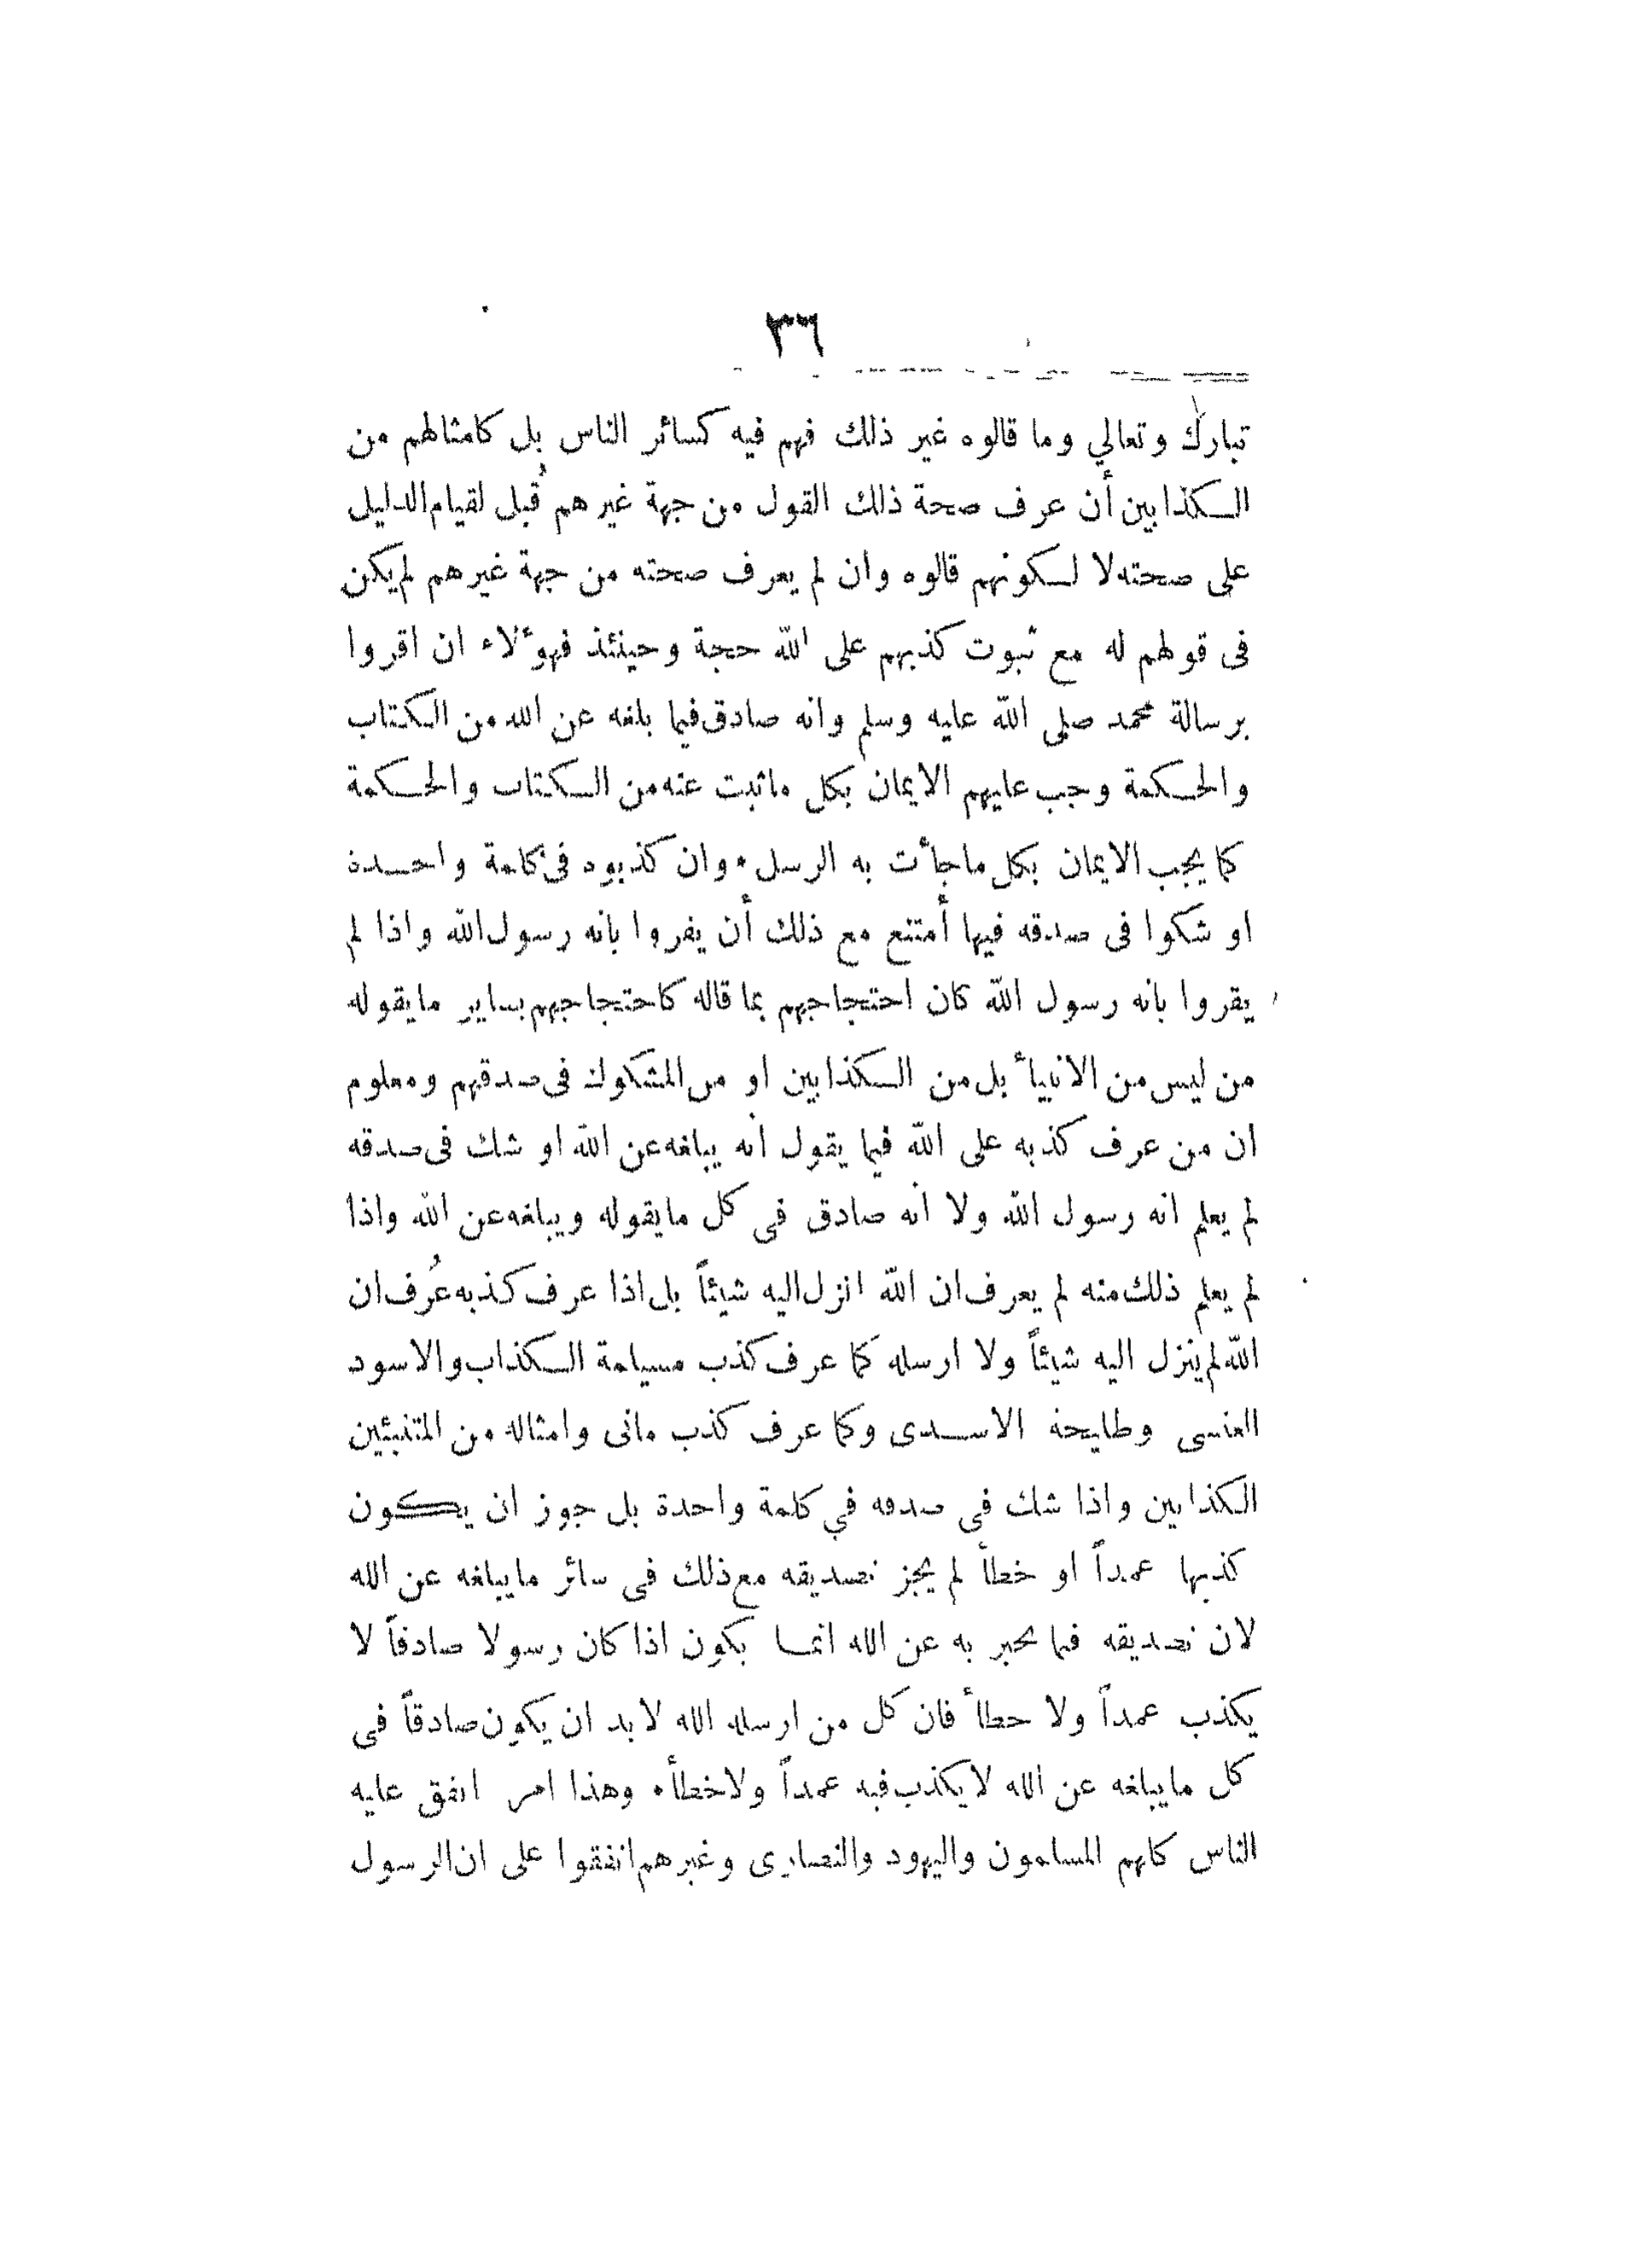 ٣٦
تبارك وتعالي وما قالوه غير ذلك فهم فيه كسائر الناس بل كامثالهم من
الكذابين أن عرف صحة ذلك القول من جهة غيرهم قُبل لقيام الدليل
على صحته لا لكونهم قالوه وان لم يعرف صحته من جهة غيرهم لم يكن
فى قولهم له مع ثبوت كذبهم على الله حجة وحينئذ فهؤلاء ان اقروا
برسالة محمد صلى الله عليه وسلم وانه صادق فيما بلغه عن الله من الكتاب
والحكمة وجب عليهم الايمان بكل ماثبت عنه من الكتاب والحكمة
كما يجب الايمان بكل ماجأت به الرسل • وان كذبوه فى كلمة واحدة
او شكوا فى صدقه فيها أمتنع مع ذلك أن يقروا بانه رسول الله واذا لم
يقروا بانه رسول الله كان احتجاجهم بما قاله كاحتجاجهم بساير مايقوله
من ليس من الانبيأ بل من الكذابين او من المشكوك فى صدقهم ومعلوم
ان من عرف كذبه على الله فيما يقول انه يبلغه عن الله او شك فى صدقه
لم يعلم انه رسول الله ولا انه صادق في كل مايقوله ويبلغه عن الله واذا
لم يعلم ذلك منه لم يعرف ان الله انزل اليه شيئاً بل اذا عرف كذبه عُرف ان
الله لم ينزل اليه شيئاً ولا ارسله كما عرف كذب مسيلمة الكذاب والاسود
العنسى وطليحة الاسدى وكما عرف كذب مانى وامثاله من المتنبئين
الكذابين واذا شك في صدقه في كلمة واحدة بل جوز ان يكون
كذبها عمداً او خطأ لم يجز تصديقه مع ذلك في سائر مايبلغه عن الله
لان تصديقه فيما يخبر به عن الله انما يكون اذا كان رسولا صادقاً لا
يكذب عمداً ولا خطأ فان كل من ارسله الله لابد ان يكون صادقاً في
كل مايبلغه عن الله لا يكذب فيه عمداً ولاخطأ • وهذا امر اتفق عليه
الناس كلهم المسلمون واليهود والنصارى وغيرهم اتفقوا على ان الرسول